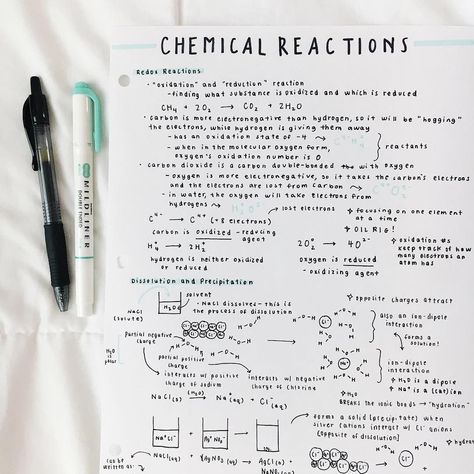 CHEMICAL REACTIONS
Redox Reactions
- "oxidation" and "reduction" reaction
- finding what substance is oxidized and which is reduced
CH₄ + 2O₂ → CO₂ + 2H₂O
- carbon is more electronegative than hydrogen, so it will be "hogging"
the electrons, while hydrogen is giving them away
- has an oxidation state of -4
- when in the molecular oxygen form,
oxygen's oxidation number is 0
reactants
- carbon dioxide is a carbon double-bonded with oxygen
- oxygen is more electronegative, so it takes the carbon's electrons
and the electrons are lost from carbon →
- in water, the oxygen will take electrons from
hydrogens →
lost electrons
C⁴⁻ → C⁴⁺ (-8 electrons)
carbon is oxidized - reducing
agent
hydrogen is neither oxidized
or reduced
focusing on one element
at a time
OIL RIG!
oxidation #s
keep track of how
many electrons an
atom has
oxygen is reduced
- oxidizing agent
MILDLINER
Dissolution and Precipitation
solvent
H₂O
NaCl
(solute)
- NaCl dissolves - this is
the process of dissolution
opposite charges attract
also an ion-dipole
interaction
forms a
solution!
partial negative
charge
H₂O is
polar
partial positive
charge
interacts w/ positive
charge of sodium
interacts w/ negative
charge of chlorine
ion-dipole
interaction
H₂O is a dipole
Na⁺ is a (cat)ion
BREAKS the ionic bonds → "hydration"
NaCl(s) (H₂O) → Na⁺(aq) + Cl⁻(aq)
forms a solid (precipitate) when
silver cations interact w/ Cl⁻ anions
(opposite of dissolution)
Na⁺Cl⁻
Ag⁺NO₃⁻
can be
written as:
NaCl(aq) + AgNO₃(aq) → AgCl(s) +